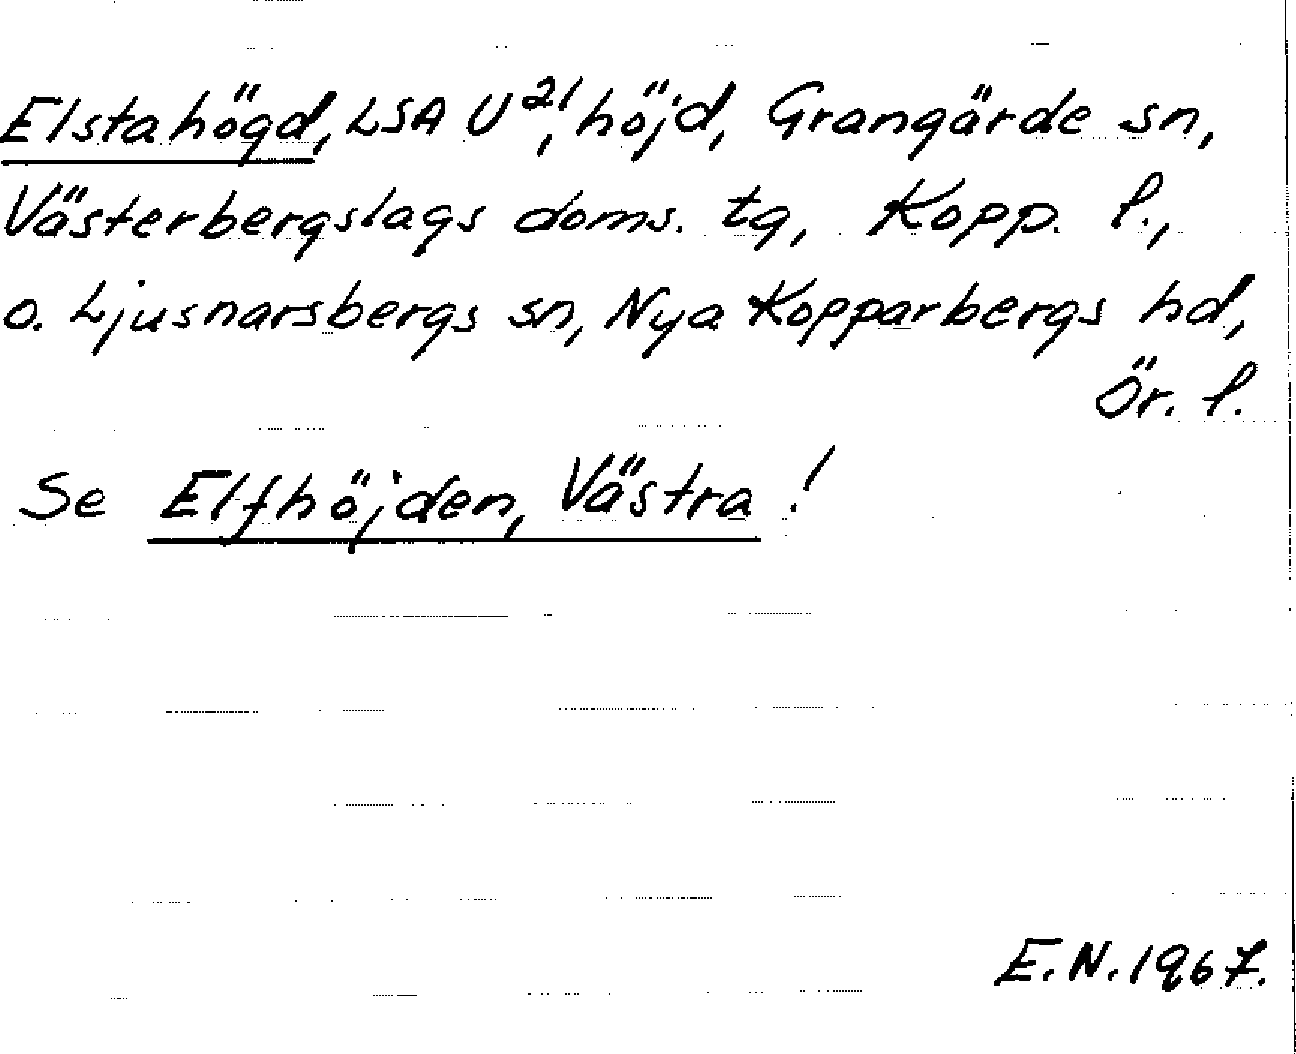 Elstahögd, LSA U²¹, höjd, Grangärde sn,
Västerbergslags doms. tg, Kopp. l.,
o. Ljusnarsbergs sn, Nya Kopparbergs hd,
Ör. l.
Se Elfhöjden, Västra!
E.N. 1967.